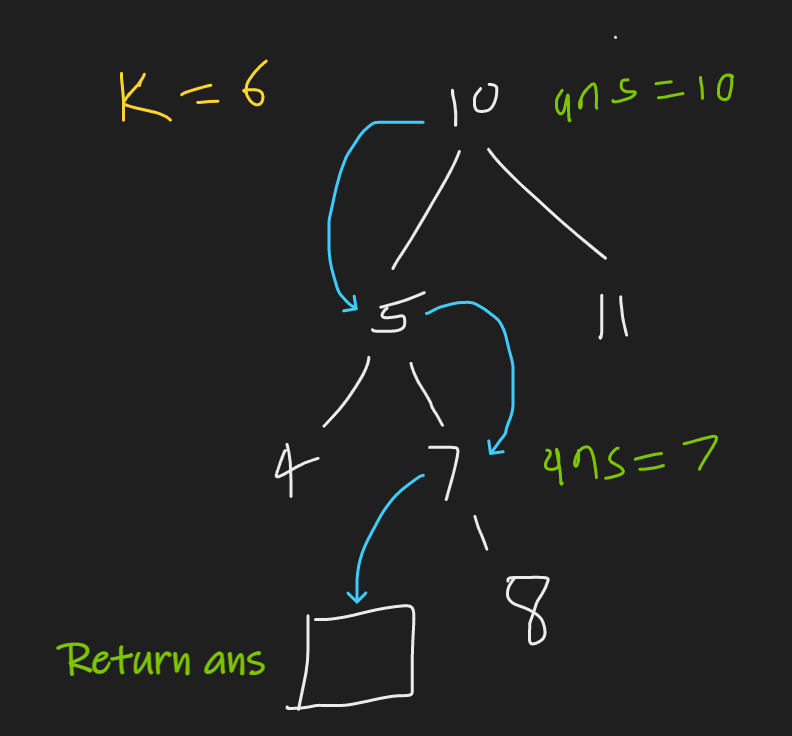 K = 6
10
ans = 10
5
11
4
7
ans = 7
8
Return ans